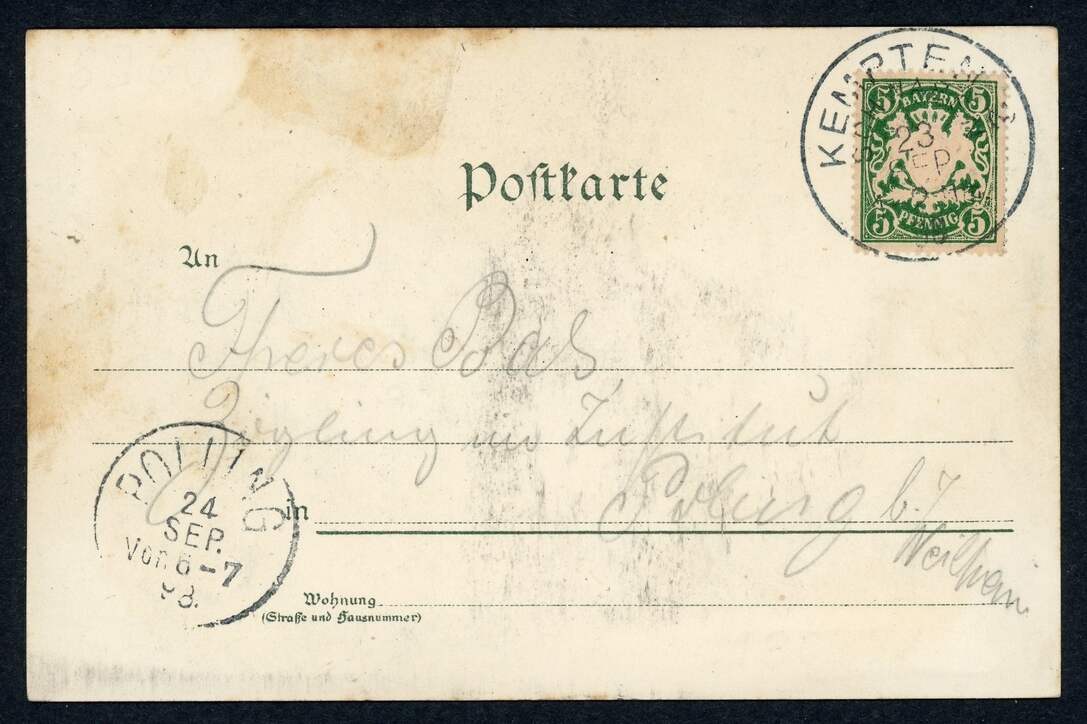 KEMPTEN
23
SEP
5 5
BAYERN
PFENNIG
5 5
Postkarte
An
Theres
Zögling im Institut
in Polling b./
Weilheim
POLLING
24
SEP.
Vor. 6-7
98.
Wohnung
(Straße und Hausnummer)